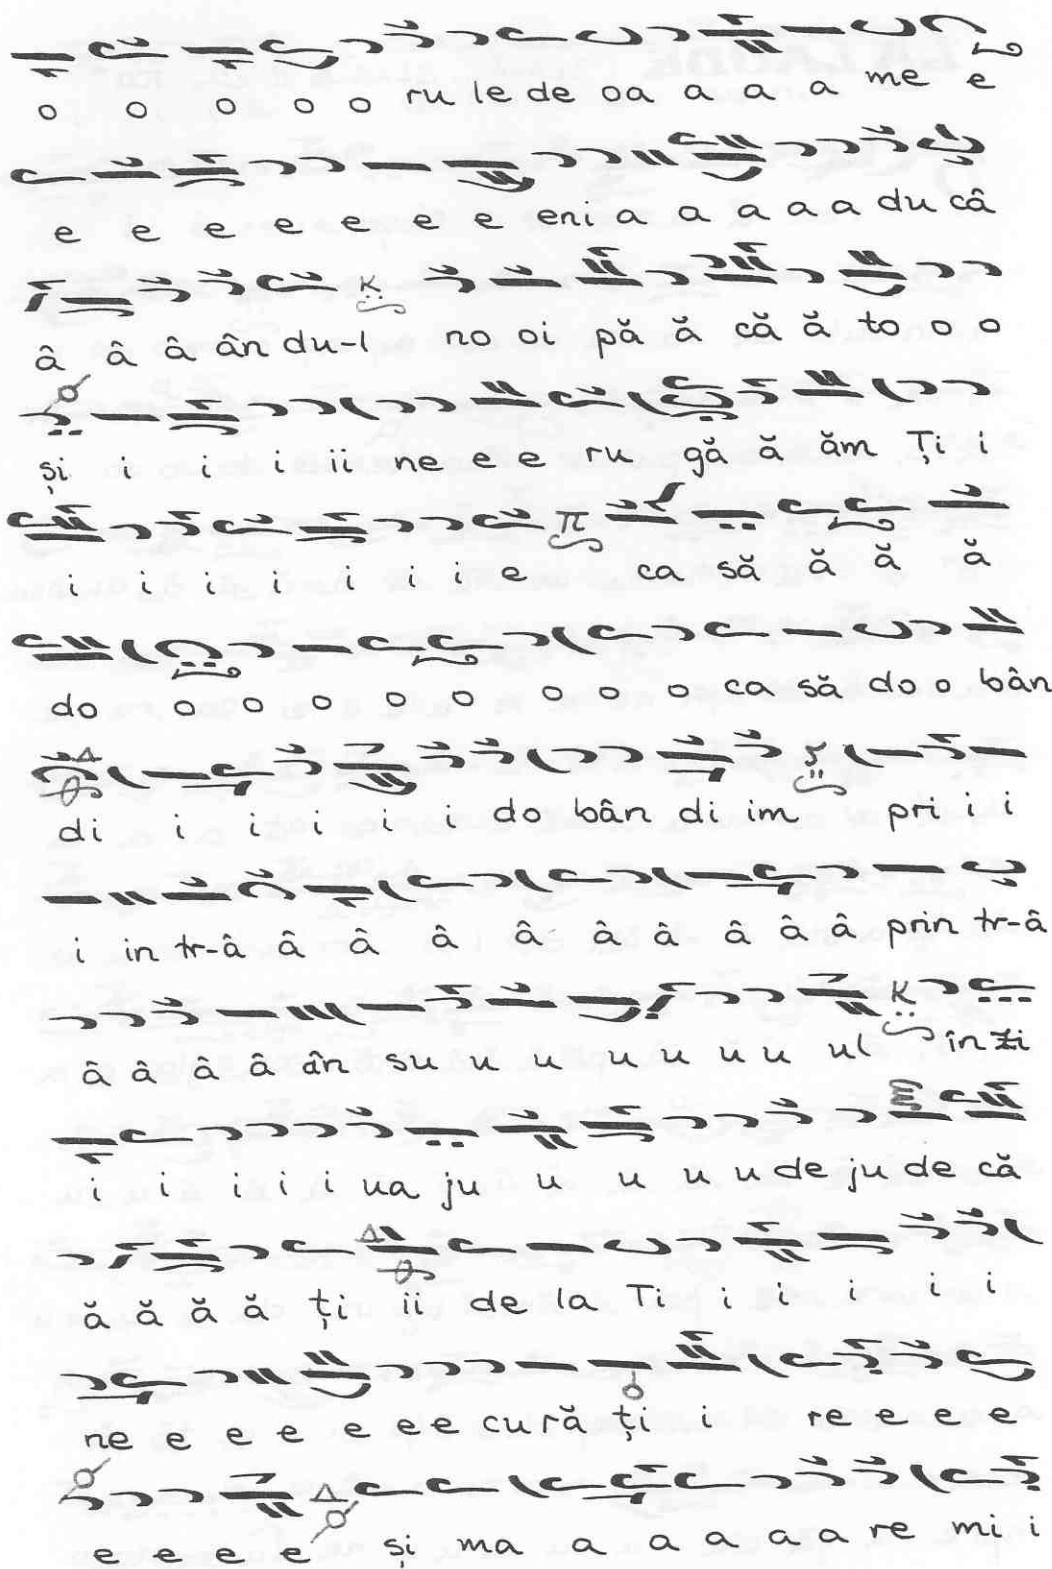 o o o o o o ru le de oa a a a me e
e e e e e e e eni a a a a a du câ
â â â ân du-l no oi pă ă că ă to o o
și i i i ii ne e e ru gă ă ăm Ți i
i i i i i i i e ca să ă ă ă
do o o o o o o o o ca să do o bân
di i i i i i do bân di im pri i i
i in tr-â â â â â â â â â â prin tr-â
â â â â ân su u u u u u u ul în zi
i i i i i i ua ju u u u u de ju de că
ă ă ă ă ți ii de la Ti i i i i i
ne e e e e e e cu ră ți i re e e e
e e e e și ma a a a a a re mi i